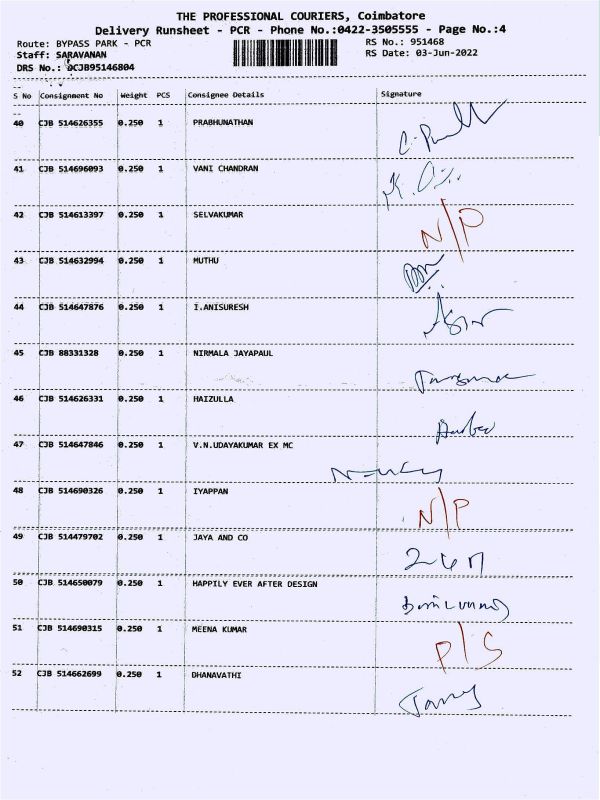 THE PROFESSIONAL COURIERS, Coimbatore
Delivery Runsheet - PCR - Phone No.:0422-3505555 - Page No.:4
Route: BYPASS PARK - PCR RS No.: 951468
Staff: SARAVANAN RS Date: 03-Jun-2022
DRS No.: DCJB95146804
S No Consignment No Weight PCS Consignee Details Signature
40 CJB 514626355 0.250 1 PRABHUNATHAN
41 CJB 514696093 0.250 1 VANI CHANDRAN
42 CJB 514613397 0.250 1 SELVAKUMAR N/P
43 CJB 514632994 0.250 1 MUTHU
44 CJB 514647876 0.250 1 I.ANISURESH
45 CJB 88331328 0.250 1 NIRMALA JAYAPAUL
46 CJB 514626331 0.250 1 HAIZULLA
47 CJB 514647846 0.250 1 V.N.UDAYAKUMAR EX MC
48 CJB 514690326 0.250 1 IYAPPAN N/P
49 CJB 514479702 0.250 1 JAYA AND CO
50 CJB 514650079 0.250 1 HAPPILY EVER AFTER DESIGN
51 CJB 514690315 0.250 1 MEENA KUMAR P/S
52 CJB 514662699 0.250 1 DHANAVATHI